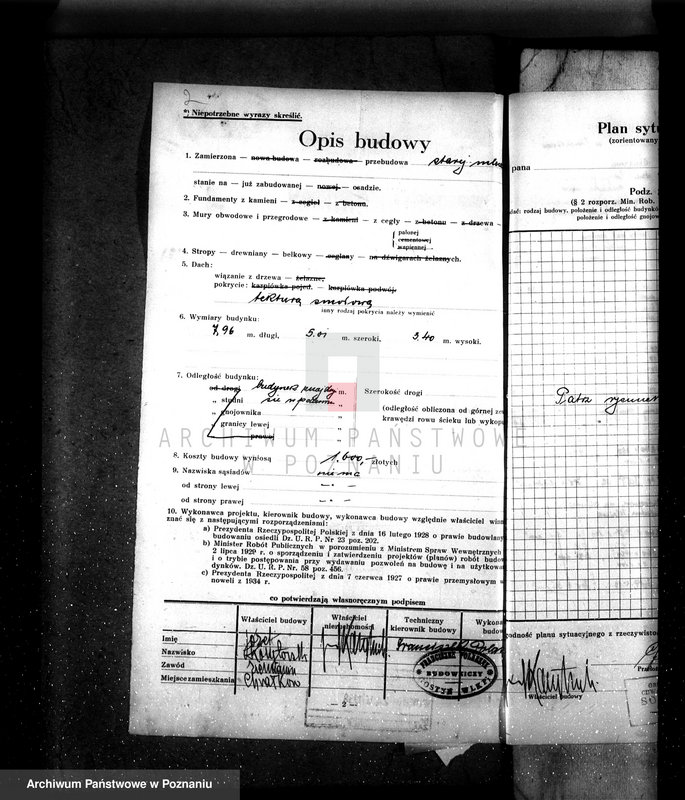 2
*) Niepotrzebne wyrazy skreślić.
Opis budowy
1. Zamierzona — nowa budowa — rozbudowa — przebudowa starej
stanie na — już zabudowanej — nowej — osadzie.
2. Fundamenty z kamieni — z cegieł — z betonu.
3. Mury obwodowe i przegrodowe — z kamieni — z cegły — z betonu — z drzewa —
palonej
cementowej
wapiennej —
4. Stropy — drewniany — belkowy — ceglany — na dźwigarach żelaznych.
5. Dach:
wiązanie z drzewa — żelazne,
pokrycie: karpiówka pojed. — karpiówka podwój.
tekturą smołową
inny rodzaj pokrycia należy wymienić
6. Wymiary budynku:
7,96 m. długi, 5.01 m. szeroki, 3,40 m. wysoki.
7. Odległość budynku:
od drogi budynek znajduje m. Szerokość drogi
„ studni się w „ (odległość obliczona od górnej
„ gnojownika „ krawędzi rowu ścieku lub
granicy lewej „
„ prawej
8. Koszty budowy wyniosą 1.600,— złotych
9. Nazwiska sąsiadów niema
od strony lewej — . —
od strony prawej — . —
10. Wykonawca projektu, kierownik budowy, wykonawca budowy względnie właściciel
znać się z następującymi rozporządzeniami:
a) Prezydenta Rzeczypospolitej Polskiej z dnia 16 lutego 1928 o prawie
budowaniu osiedli Dz. U. R. P. Nr 23 poz. 202.
b) Minister Robót Publicznych w porozumieniu z Ministrem Spraw Wewnętrznych
2 lipca 1929 r. o sporządzaniu i zatwierdzeniu projektów (planów) robót
i o trybie postępowania przy wydawaniu pozwoleń na budowę i na
dynków. Dz. U. R. P. Nr 58 poz. 456.
c) Prezydenta Rzeczypospolitej z dnia 7 czerwca 1927 o prawie przemysłowym
noweli z 1934 r.
co potwierdzają własnoręcznym podpisem
Właściciel budowy
Właściciel nieruchomości
Techniczny kierownik budowy
Imię Józef
Nazwisko
Zawód
Miejsce zamieszkania Chwałkowo
FRANCISZEK POLASZEK
BUDOWNICZY
GOSTYŃ WLKP.
— 2 —
Plan
(zorientowany
pana
Podz.
(§ 2 rozporz. Min. Rob.
rodzaj budowy, położenie i odległość
położenie i odległość
Patrz rysunek
planu sytuacyjnego z
Właściciel budowy
ARCHIWUM PAŃSTWOWE
W POZNANIU
Archiwum Państwowe w Poznaniu